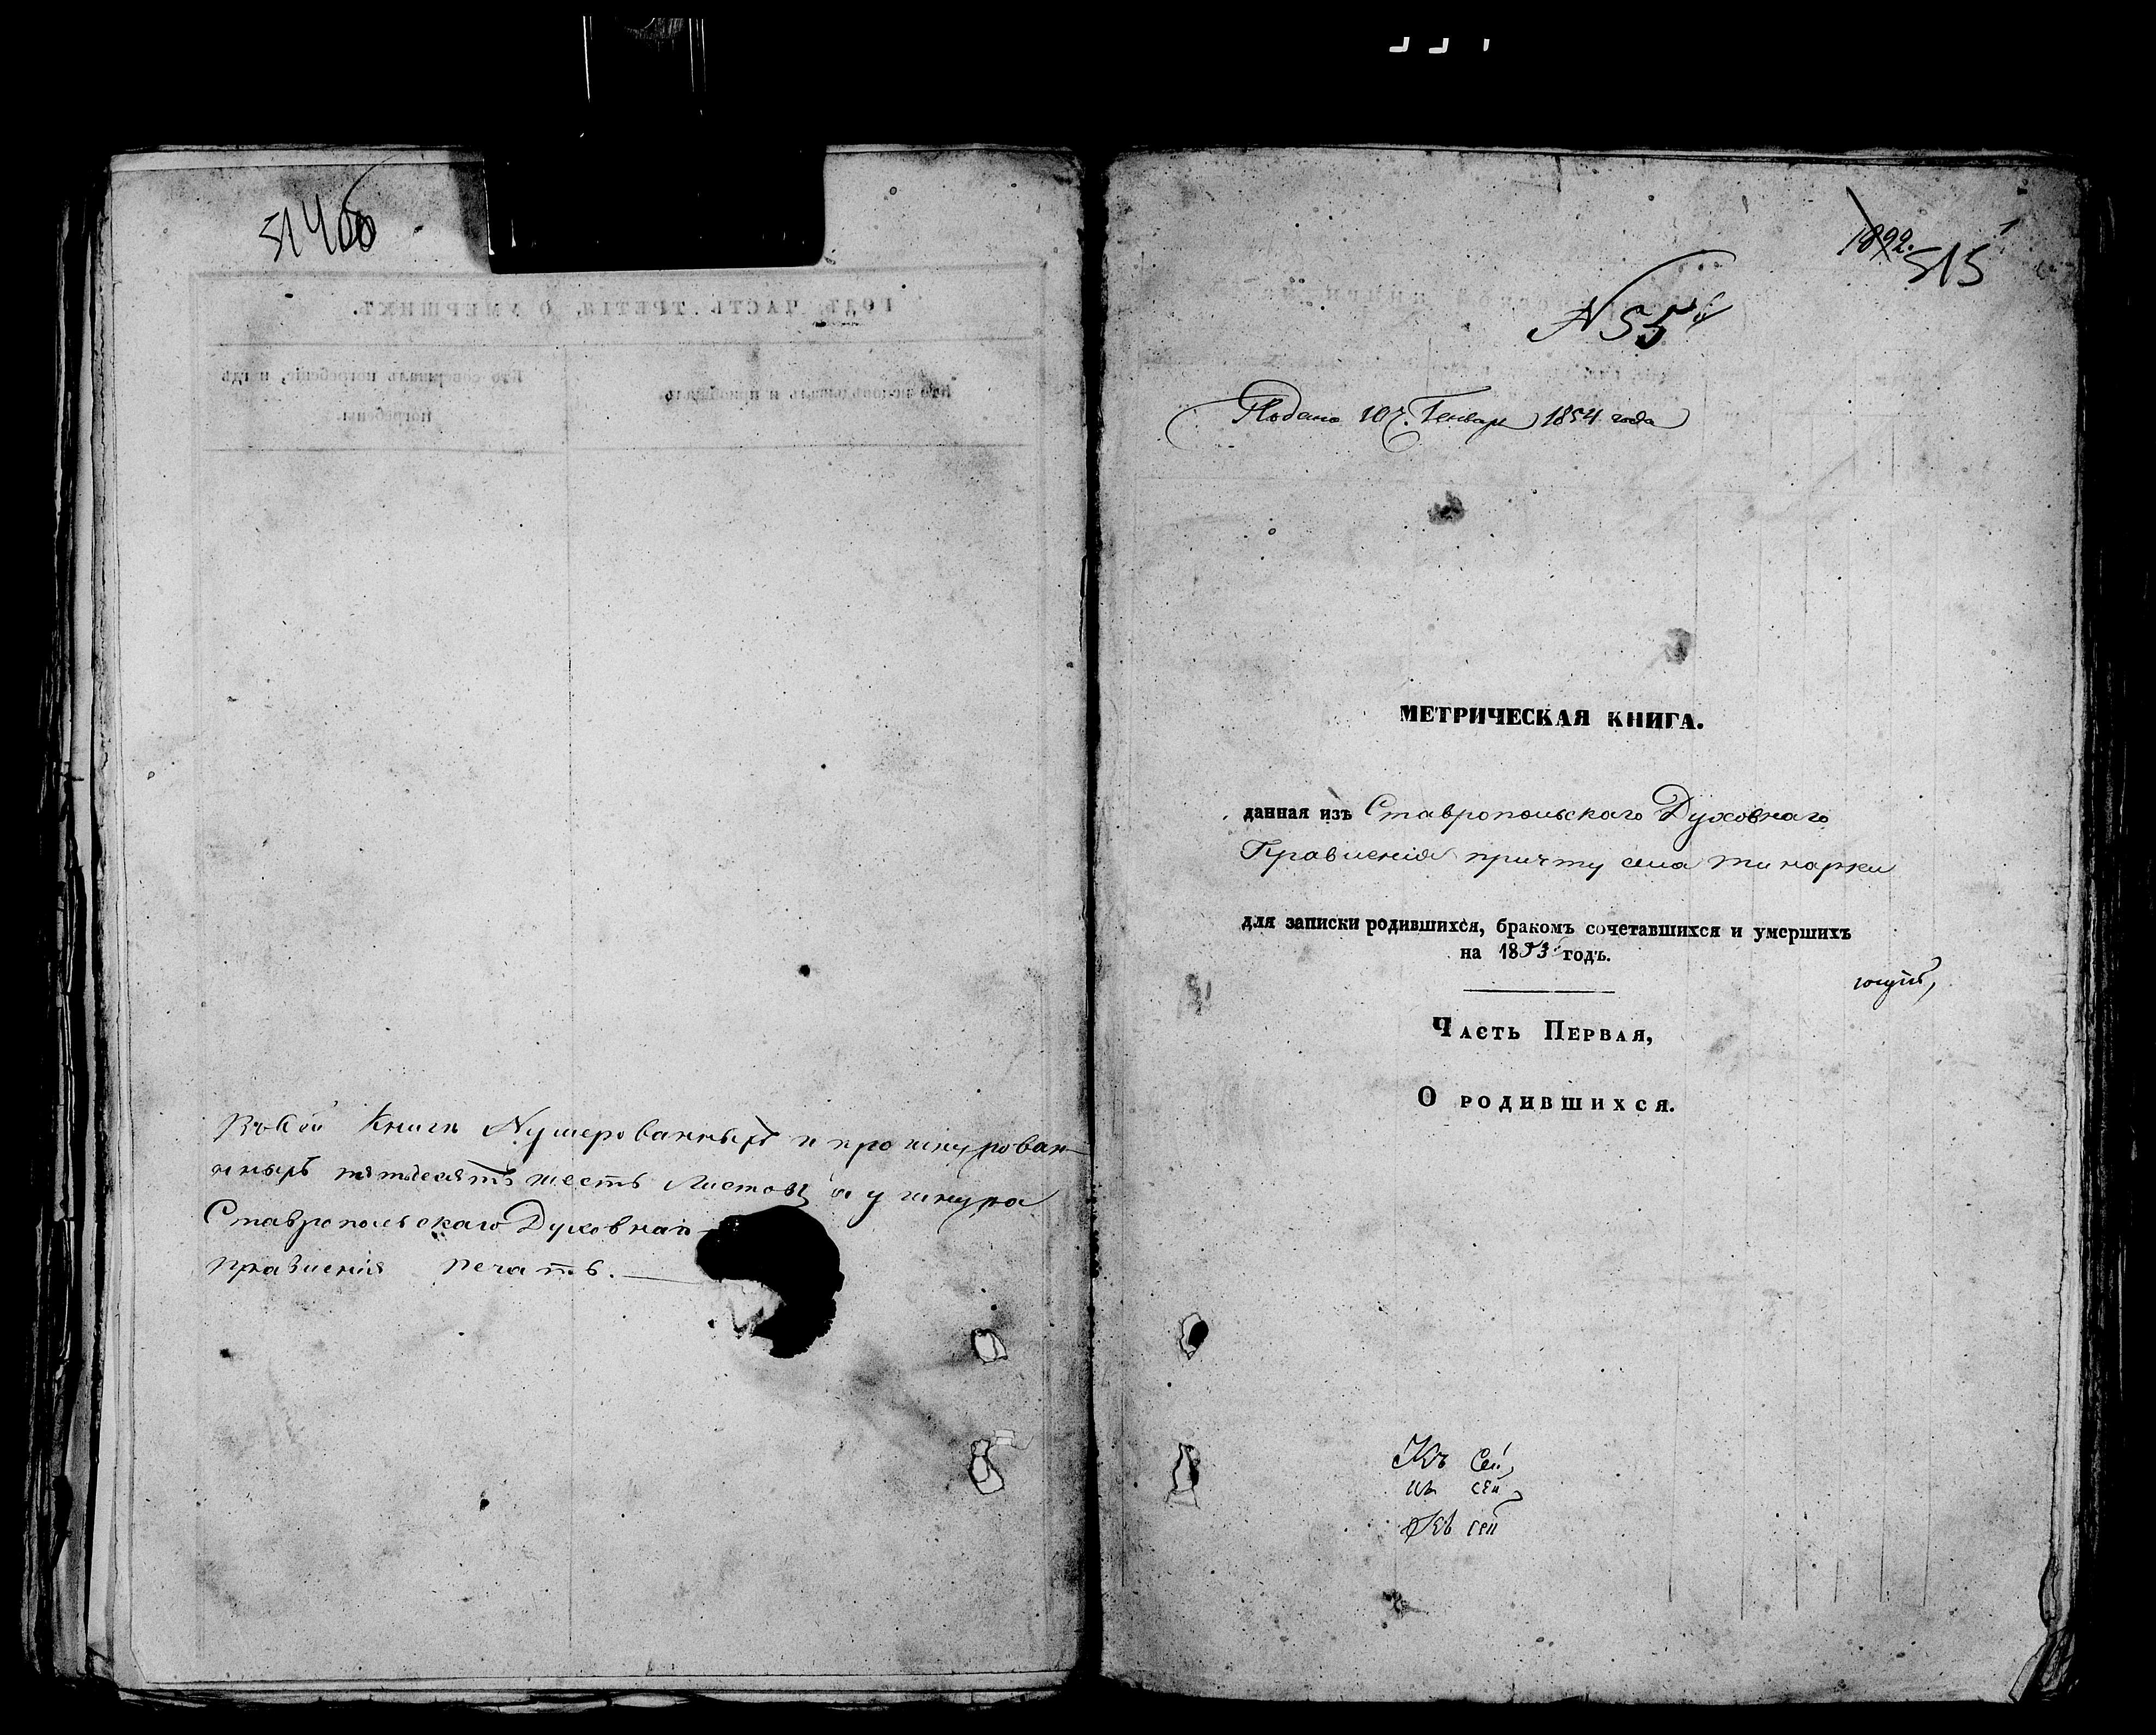 514об
Въ сей Книгѣ Нумерованныхъ и прошнурован-
ныхъ пятьдесятъ шесть листовъ а у шнура
Ставропольскаго Духовнаго
правленія печать.
1
1892.
515
N 55й
Подано 10 ч. Генваря 1854 года
МЕТРИЧЕСКАЯ КНИГА.
данная изъ Ставропольскаго Духовнаго
Правленія причту села Тинарки
для записки родившихся, бракомъ сочетавшихся и умершихъ
на 1853 годъ.
Часть Первая,
О родившихся.
Къ сей
къ сей
Къ сей